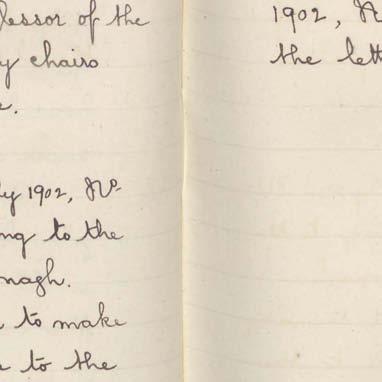 lessor of the
y chairs
e.
ly 1902, No
ng to the
nagh.
to make
e to the
1902, N
the lett